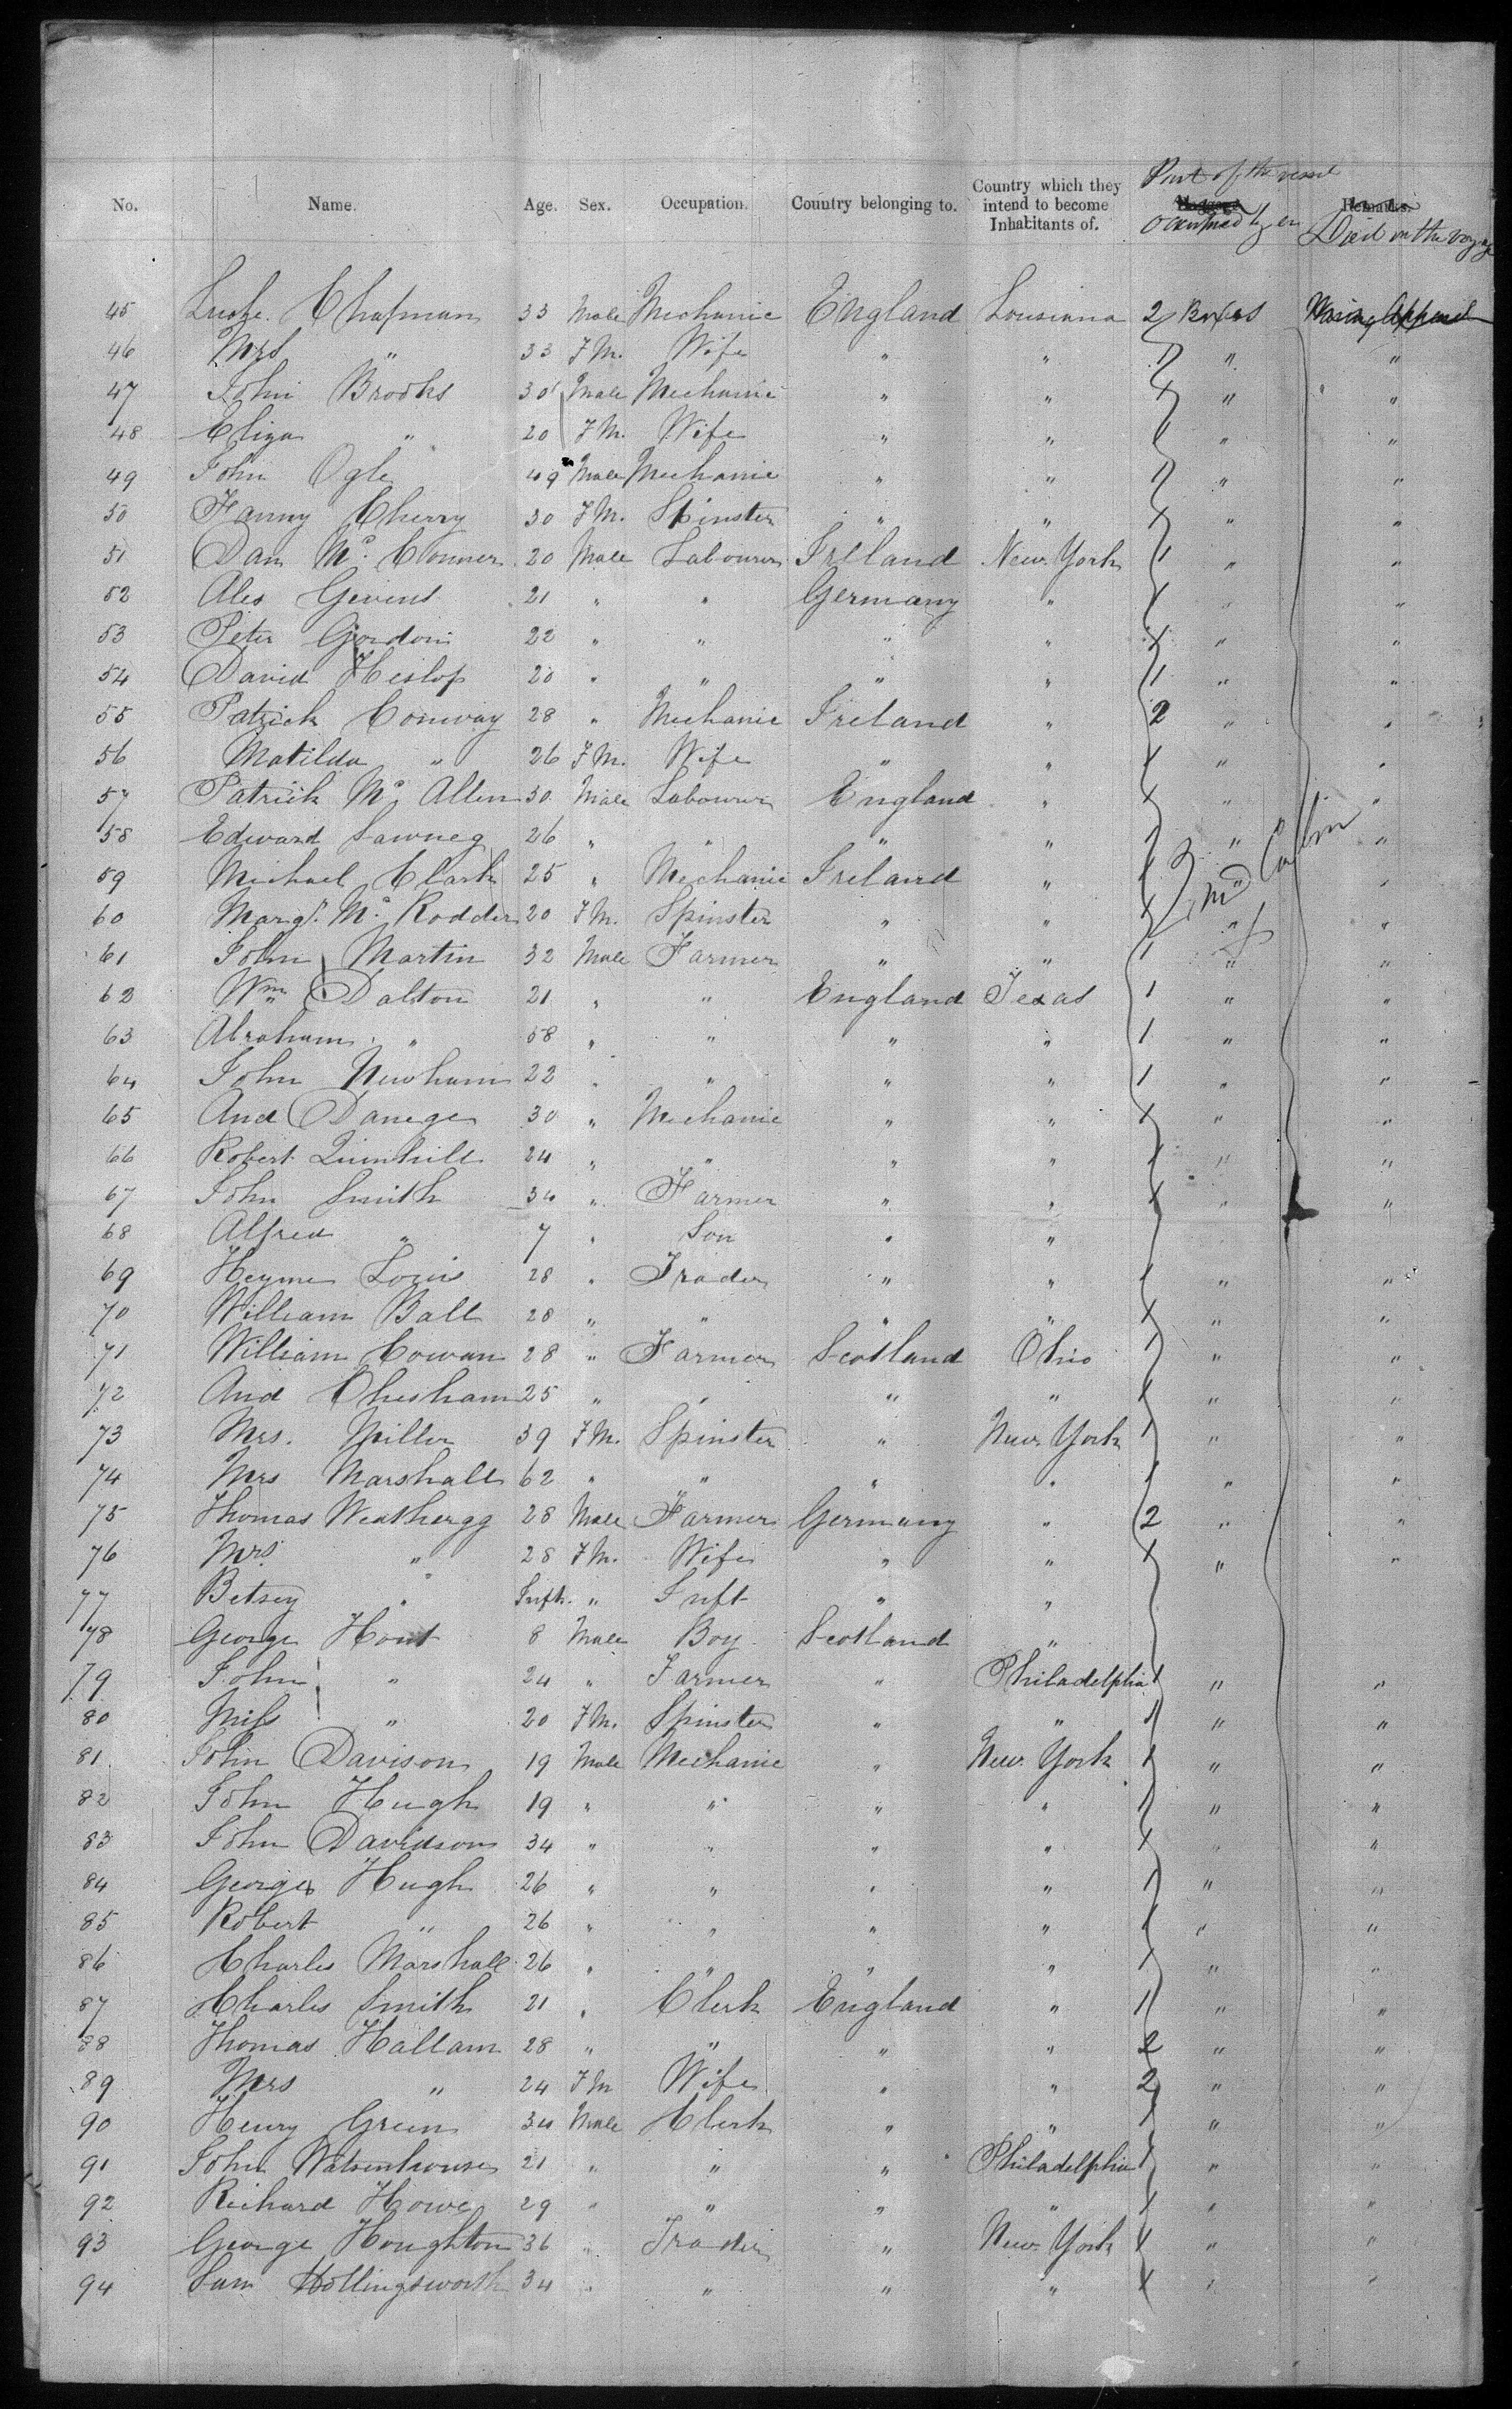 Part of the vessel
No. Name. Age. Sex. Occupation. Country belonging to. Country which they intend to become Inhabitants of. Luggage occupied by en Remarks. Died on the voyage
45 Chapman 33 Male Mechanic England Lousiana 2 Boxes Waring Apparel
46 Mrs " 33 FM. Wife " " 1 " "
47 John Brooks 30 Male Mechanic " " 1 " "
48 Eliza " 20 FM. Wife " " 1 " "
49 John Ogle 49 Male Mechanic " " 1 " "
50 Fanny Cherry 30 FM. Spinster " " 1 " "
51 Dan Mc. Conner 20 Male Labourer Ireland New York 1 " "
52 Alex Givens 21 " " Germany " 1 " "
53 Peter Gordon 22 " " " " 1 " "
54 David Heslop 20 " " " " 1 " "
55 Patrick Conway 28 " Mechanic Ireland " 2 " "
56 Matilda " 26 FM. Wife " " 1 " "
57 Patrick Mc Allen 30 Male Labourer England " 1 " "
58 Edward 26 " " " " 1 " "
59 Michael Clark 25 " Mechanic Ireland " 1 " "
2nd Cabin
60 Margt. Mc Rodden 20 FM. Spinster " " 1 " "
61 John Martin 32 Male Farmer " " 1 " "
62 Wm Dalton 21 " " England Texas 1 " "
63 Abraham " 58 " " " " 1 " "
64 John Newham 22 " " " " 1 " "
65 And 30 " Mechanic " " 1 " "
66 Robert 24 " " " " 1 " "
67 John Smith 34 " Farmer " " 1 " "
68 Alfred " 7 " Son " "
69 Heymen Louis 28 " Trader " " 1 " "
70 William Ball 28 " " " " 1 " "
71 William Cowan 28 " Farmer Scotland Ohio 1 " "
72 And Chisham 25 " " " " 1 " "
73 Mrs. Miller 39 FM. Spinster " New York 1 " "
74 Mrs Marshall 62 " " " " 1 " "
75 Thomas Weathergg 28 Male Farmer Germany " 2 " "
76 Mrs " 28 FM. Wife " " 1 " "
77 Betsey " Inft. " Inft " "
78 George Hout 8 Male Boy Scotland "
79 John " 24 " Farmer " Philadelphia 1 " "
80 Miss " 20 FM. Spinster " " 1 " "
81 John Davison 19 Male Mechanic " New York 1 " "
82 John Hugh 19 " " " " 1 " "
83 John Davidson 34 " " " " 1 " "
84 George Hugh 26 " " " " 1 " "
85 Robert " 26 " " " " 1 " "
86 Charles Marshall 26 " " " " 1 " "
87 Charles Smith 21 " Clerk England " 1 " "
88 Thomas Hallam 28 " " " " 2 " "
89 Mrs " 24 FM Wife " " 2 " "
90 Henry Green 34 Male Clerk " " 1 " "
91 John 21 " " " Philadelphia 1 " "
92 Richard Howe 29 " " " " 1 " "
93 George Houghton 36 " Trader " New York 1 " "
94 Sam Hollingsworth 34 " " " " 1 " "